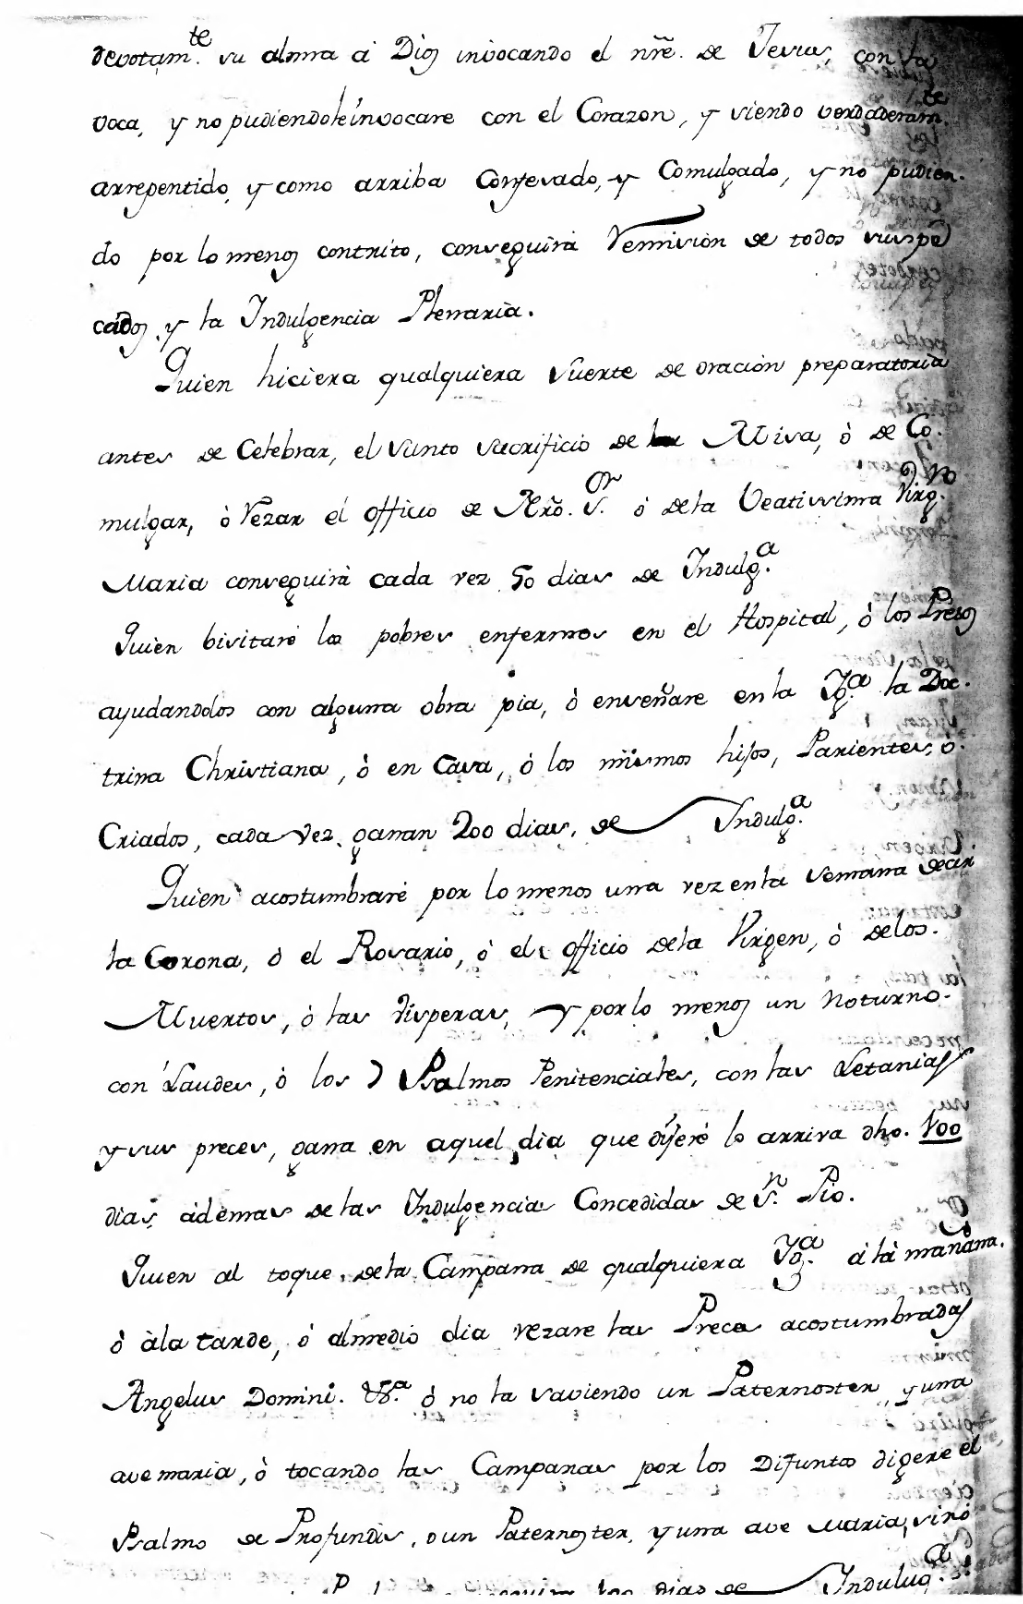 devotam.te su alma á Dios invocando el nr̃e. de Jesus, con la
voca, y no pudiendole invocare con el Corazon, y siendo verdaderam.te
arrepentido, y como arriba Confesado, y Comulgado, y no pudien-
do por lo menos contrito, conseguirà remision de todos sus pe
cados, y la Indulgencia Plenaria.
Quien hiciera qualquiera suerte de oraciòn preparatoria
antes de Celebrar, el santo sacrificio de la Misa, ò de Co-
mulgar, ò rezar el officio de Nrõ. S.or ò de la Veatissima Virg.n
Maria conseguirà cada vez 50 dias de Indulg.a
Quien bisitarè los pobres enfermos en el Hospital, ò los Presos
ayudandolos con alguna obra pia, ò enseñare en la Yg.a la Doc-
trina Christiana, ò en Casa, ò los mismos hijos, Parientes, ò
Criados, cada vez ganan 200 dias, de Indulg.a
Quien acostumbrarè por lo menos una vez en la semana decir
la Corona, ò el Rosario, ò el officio de la Virgen, ò de los
Muertos, ò las visperas, y por lo menos un Noturno
con Laudes, ò los 7 Psalmos Penitenciales, con las Letanias
y sus preces, gana en aquel dia que dijerè lo arriva dho. 100
dias, ademas de las Indulgencias Concedidas de S.n Pio.
Quien al toque de la Campana de qualquiera Yg.a á là mañana.
ò àla tarde, ò al medio dia rezare las Preces acostumbradas
Angelus Domini. &.a ò no la saviendo un Paternoster, y una
ave maria, ò tocando las Campanas por los Difuntos digere el
Psalmo de Profundis, o un Paternoster, y una ave Maria, sino
100 dias de Indulug.a